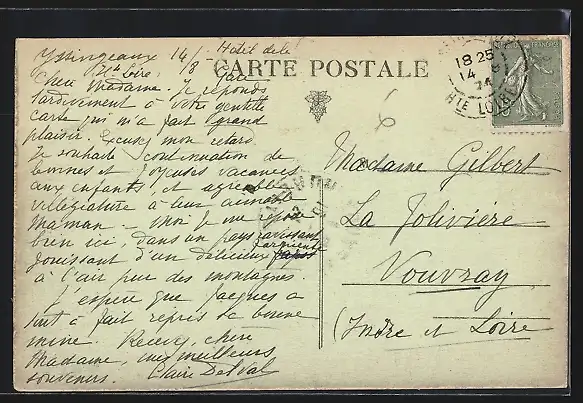 Yssingeaux 14/8 - Hôtel de la
Hte Loire,
Chère Madame. Je réponds
tardivement à votre gentille
carte qui m'a fait grand
plaisir. Excusez mon retard.
Je souhaite continuation de
bonnes et joyeuses vacances
aux enfants, et agréable
villégiature à leur aimable
Maman - Moi je me repose
bien ici, dans un pays ravissant
jouissant d'un délicieux farniente
à l'air pur des montagnes
J'espère que Jacques a
tout à fait repris sa bonne
mine. Recevez, chère
Madame, mes meilleurs
souvenirs. Claire Delval
CARTE POSTALE
18 25
14 -8
HTE LOIRE
Madame Gilbert
La Jolivière
Vouvray
(Indre et Loire